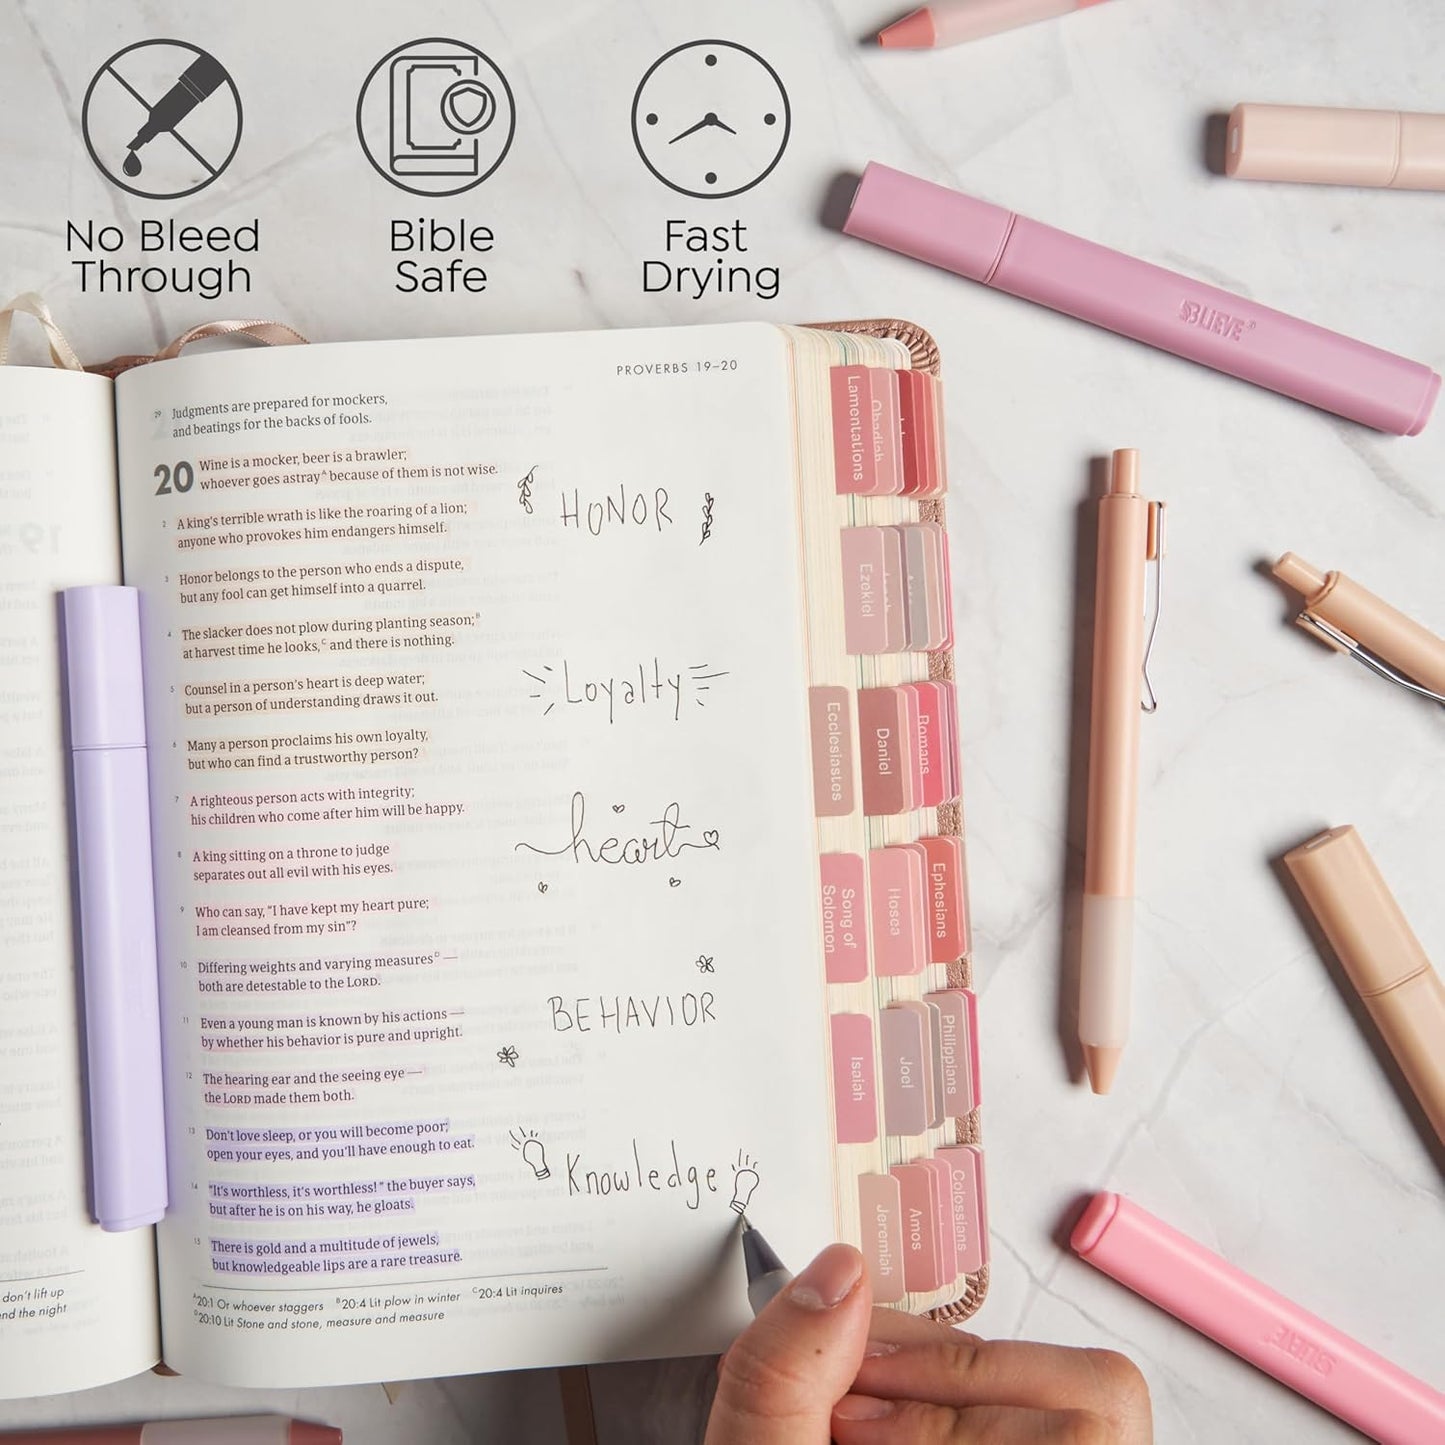 No Bleed
Through
Bible
Safe
Fast
Drying
BLIEVE®
PROVERBS 19–20
29 Judgments are prepared for mockers,
and beatings for the backs of fools.
20 Wine is a mocker, beer is a brawler;
whoever goes astray^A because of them is not wise.
2 A king's terrible wrath is like the roaring of a lion;
anyone who provokes him endangers himself.
3 Honor belongs to the person who ends a dispute,
but any fool can get himself into a quarrel.
4 The slacker does not plow during planting season;^B
at harvest time he looks,^C and there is nothing.
5 Counsel in a person's heart is deep water;
but a person of understanding draws it out.
6 Many a person proclaims his own loyalty,
but who can find a trustworthy person?
7 A righteous person acts with integrity;
his children who come after him will be happy.
8 A king sitting on a throne to judge
separates out all evil with his eyes.
9 Who can say, "I have kept my heart pure;
I am cleansed from my sin"?
10 Differing weights and varying measures^D —
both are detestable to the LORD.
11 Even a young man is known by his actions —
by whether his behavior is pure and upright.
12 The hearing ear and the seeing eye —
the LORD made them both.
13 Don't love sleep, or you will become poor;
open your eyes, and you'll have enough to eat.
14 "It's worthless, it's worthless!" the buyer says,
but after he is on his way, he gloats.
15 There is gold and a multitude of jewels,
but knowledgeable lips are a rare treasure.
^A20:1 Or whoever staggers ^B20:4 Lit plow in winter ^C20:4 Lit inquires
^D20:10 Lit Stone and stone, measure and measure
HONOR
Loyalty
heart
BEHAVIOR
Knowledge
Lamentations
Obadiah
Ezekiel
Ecclesiastes
Daniel
Romans
Song of
Solomon
Hosea
Ephesians
Isaiah
Joel
Philippians
Jeremiah
Amos
Colossians
don't lift up
the night
BLIEVE